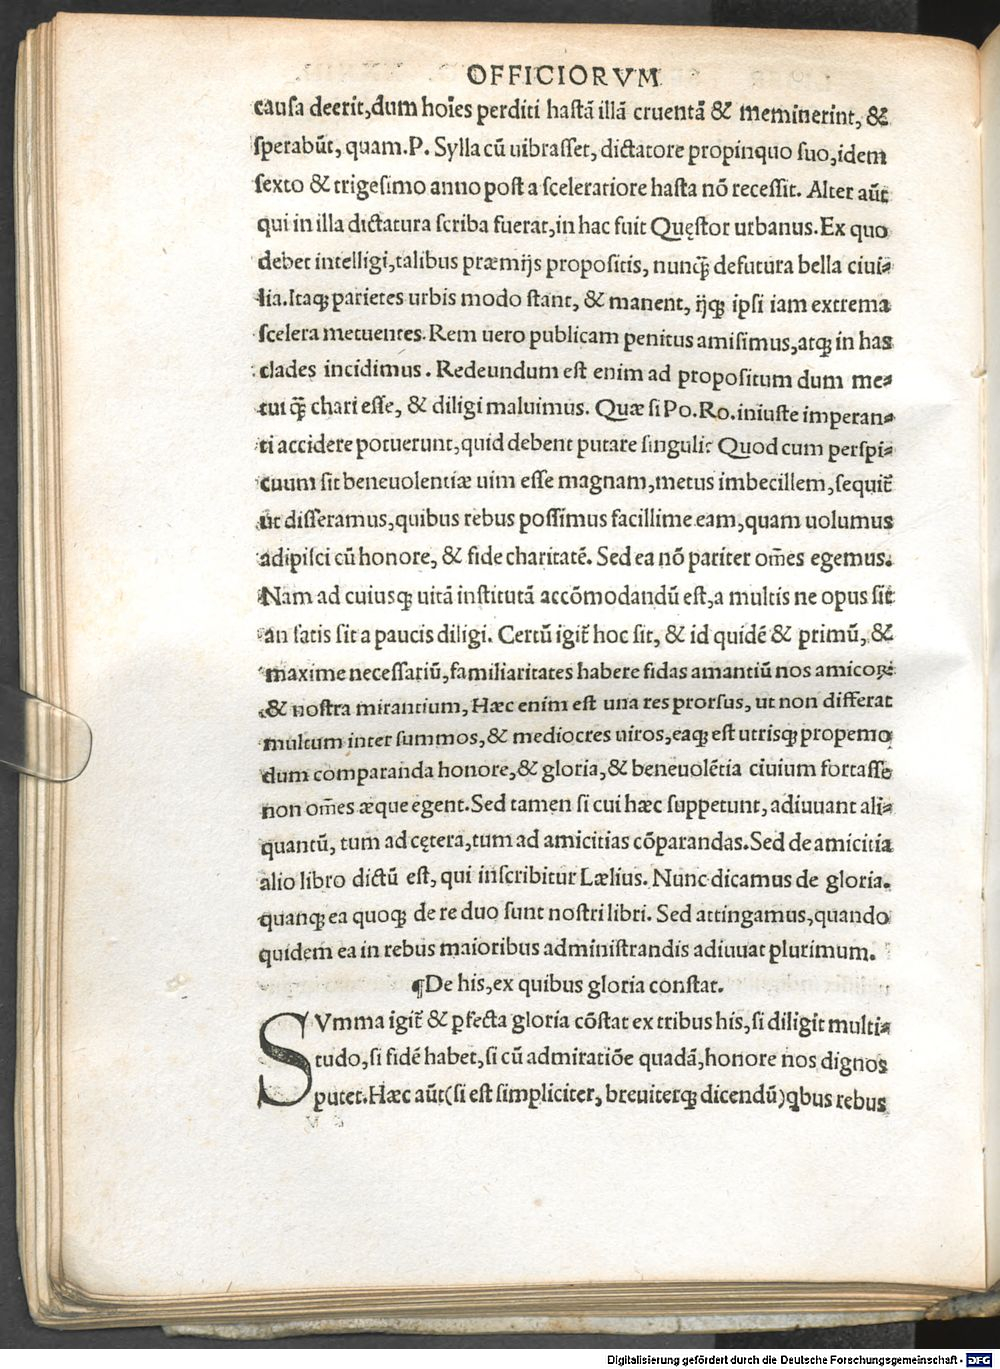 OFFICIORVM
causa deerit,dum hoīes perditi hastā illā cruentā & meminerint, &
sperabūt, quam.P. Sylla cū uibrasset, dictatore propinquo suo,idem
sexto & trigesimo anno post a sceleratiore hasta nō recessit. Alter aūt
qui in illa dictatura scriba fuerat,in hac fuit Quęstor urbanus.Ex quo
debet intelligi,talibus præmijs propositis, nunq̃ defutura bella ciui⸗
lia.Itaqꝫ parietes urbis modo stant, & manent, ijqꝫ ipsi iam extrema
scelera metuentes.Rem uero publicam penitus amisimus,atqꝫ in has
clades incidimus. Redeundum est enim ad propositum dum me⸗
tui q̃ chari esse, & diligi maluimus. Quæ si Po.Ro.iniuste imperan⸗
ti accidere potuerunt,quid debent putare singuli? Quod cum perspi⸗
cuum sit beneuolentiæ uim esse magnam,metus imbecillem,sequit̃
ut disseramus,quibus rebus possimus facillime eam,quam uolumus
adipisci cū honore, & fide charitatē. Sed ea nō pariter om̄es egemus.
Nam ad cuiusqꝫ uitā institutā accōmodandū est,a multis ne opus sit
an satis sit a paucis diligi. Certū igit̃ hoc sit, & id quidē & primū, &
maxime necessariū,familiaritates habere fidas amantiū nos amicoꝝ
& nostra mirantium, Hæc enim est una res prorsus, ut non differat
multum inter summos,& mediocres uiros,eaqꝫ est utrisqꝫ propemo
dum comparanda honore,& gloria,& beneuolētia ciuium fortasse
non om̄es æque egent.Sed tamen si cui hæc suppetunt,adiuuant ali⸗
quantū, tum ad cętera,tum ad amicitias cōparandas.Sed de amicitia
alio libro dictū est, qui inscribitur Lælius. Nunc dicamus de gloria.
quanqꝫ ea quoqꝫ de re duo sunt nostri libri. Sed attingamus,quando
quidem ea in rebus maioribus administrandis adiuuat plurimum.
¶De his,ex quibus gloria constat.
SVmma igit̃ & ꝑfecta gloria cōstat ex tribus his,si diligit multi⸗
tudo,si fidē habet,si cū admiratiōe quadā,honore nos dignos
putet.Hæc aūt(si est simpliciter, breuiterqꝫ dicendū)qbus rebus
Digitalisierung gefördert durch die Deutsche Forschungsgemeinschaft - DFG